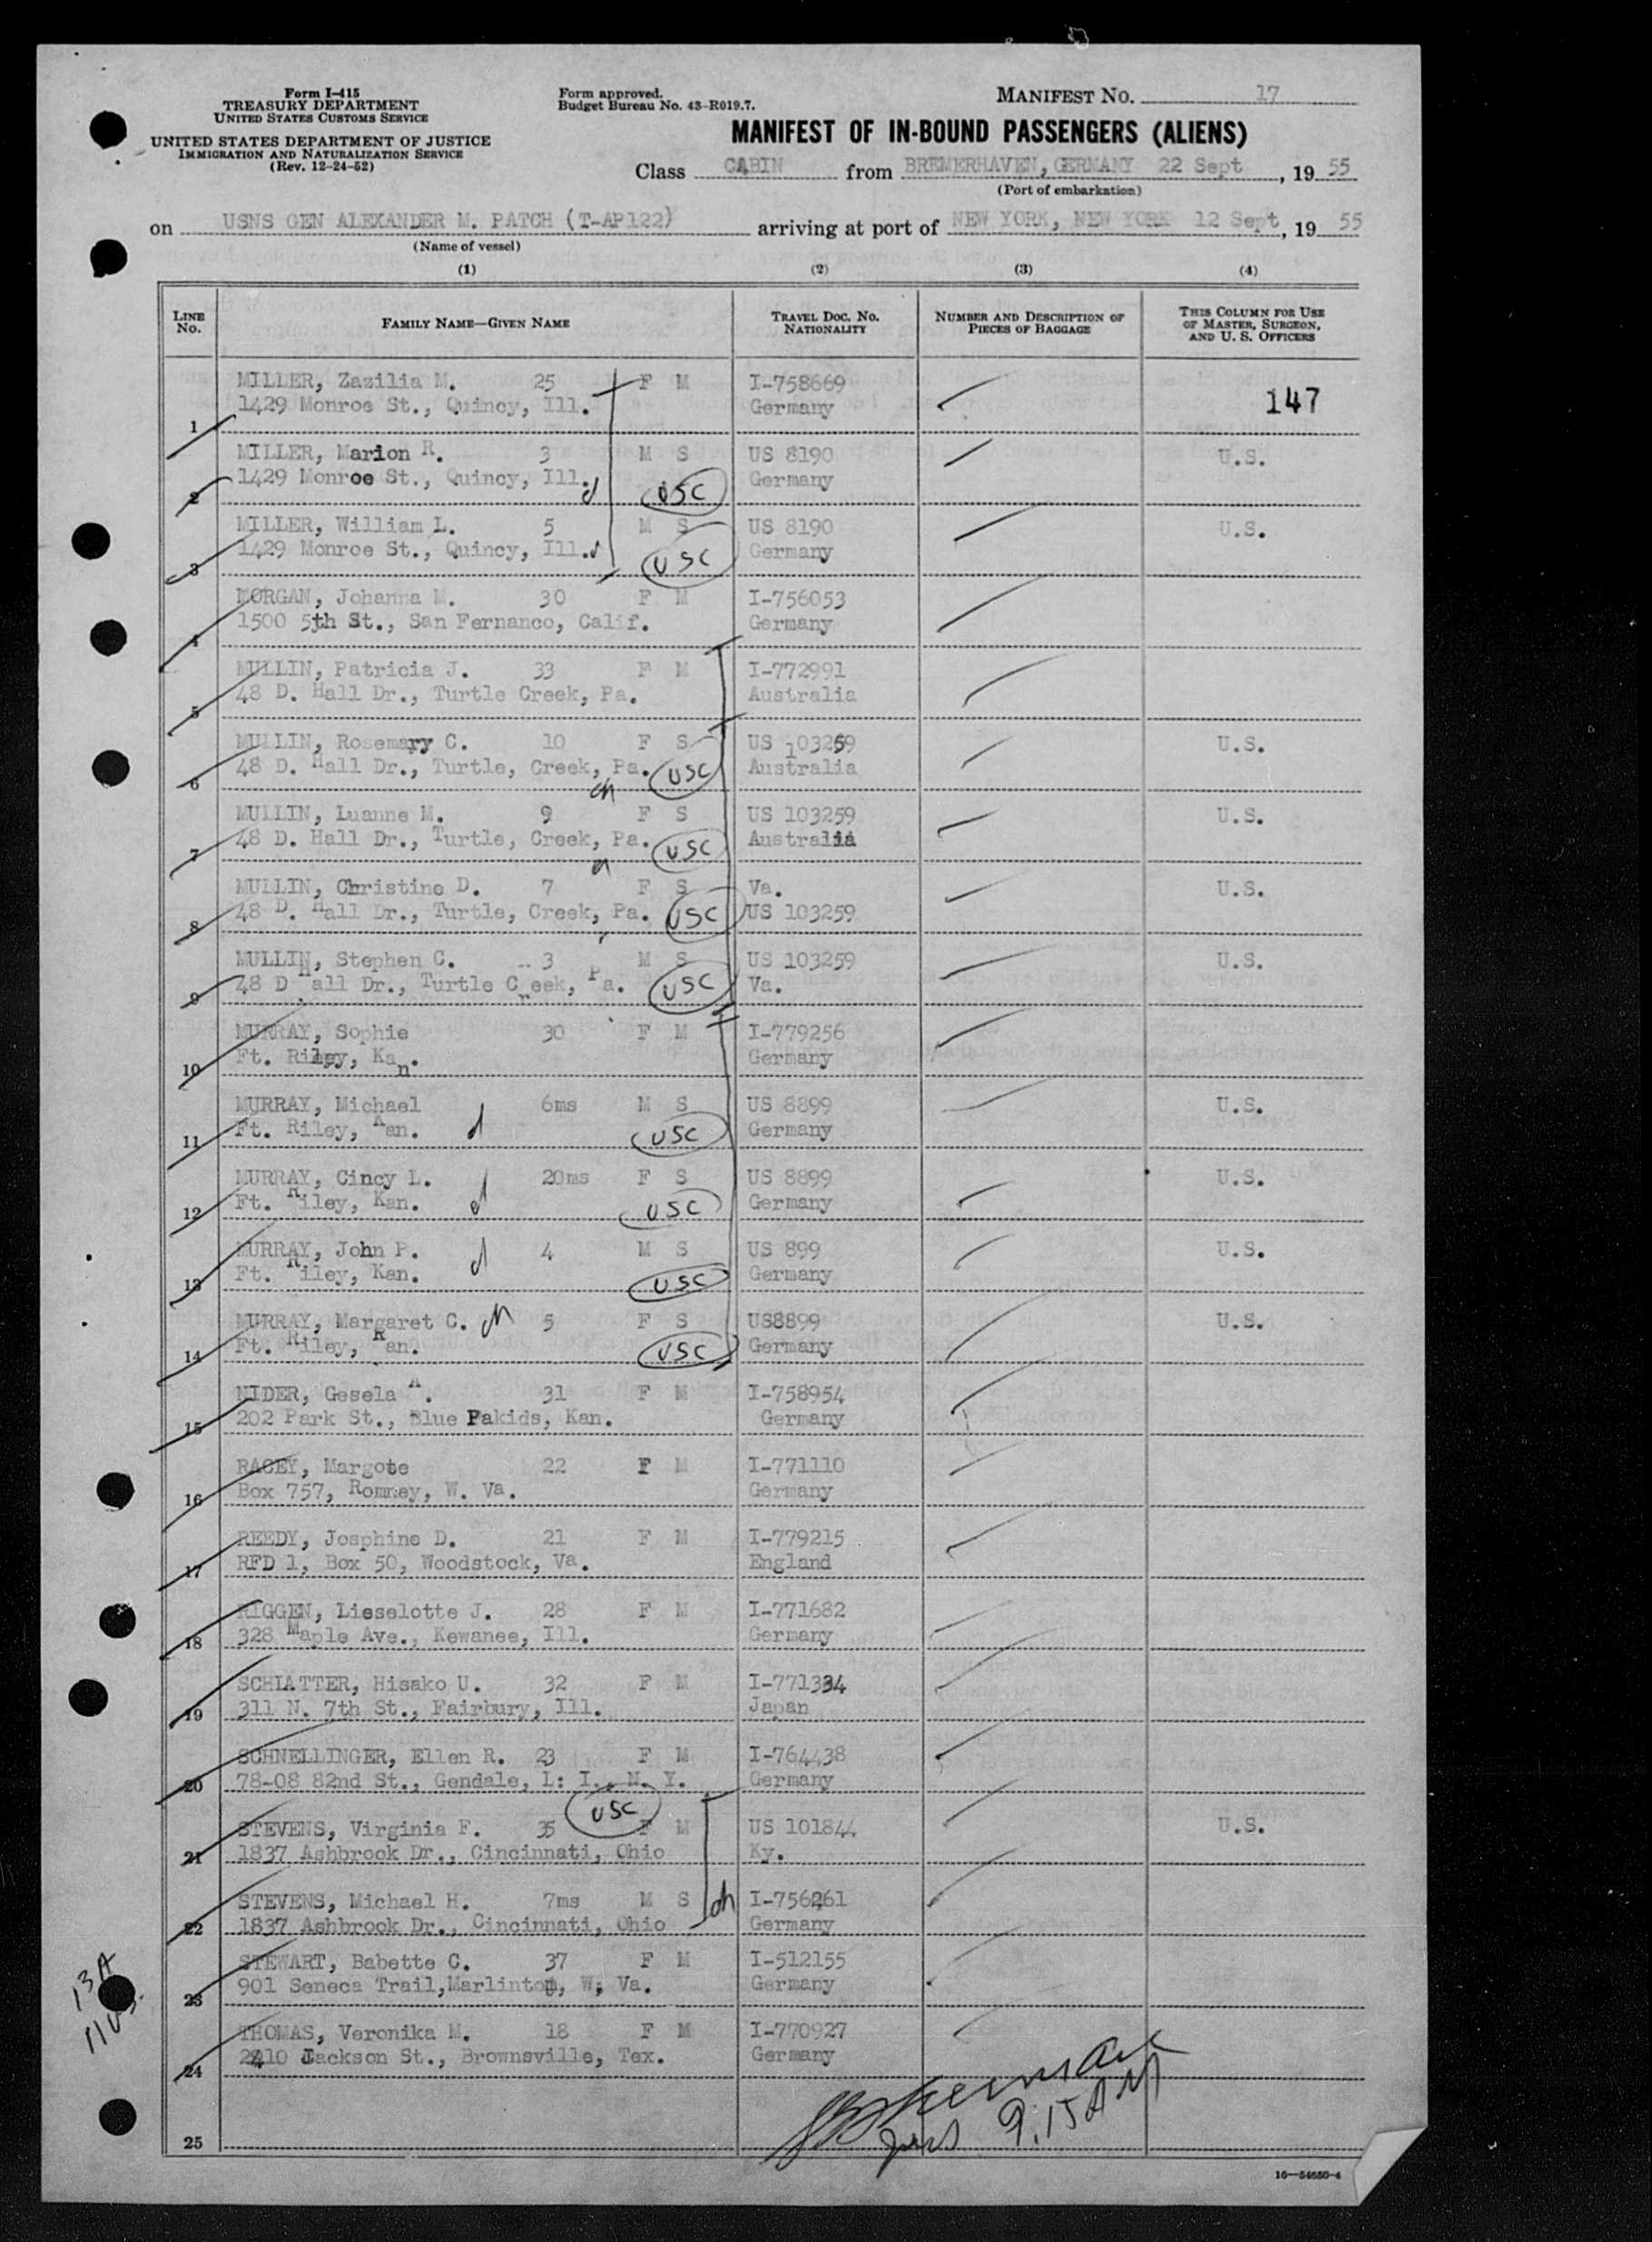 Form I-415
TREASURY DEPARTMENT
UNITED STATES CUSTOMS SERVICE
UNITED STATES DEPARTMENT OF JUSTICE
IMMIGRATION AND NATURALIZATION SERVICE
(Rev. 12-24-52)
Form approved.
Budget Bureau No. 43-R019.7.
MANIFEST NO. 17
MANIFEST OF IN-BOUND PASSENGERS (ALIENS)
Class CABIN from BREMERHAVEN, GERMANY 22 Sept, 19 55
(Port of embarkation)
on USNS GEN ALEXANDER M. PATCH (T-AP122) arriving at port of NEW YORK, NEW YORK 12 Sept, 19 55
(Name of vessel)
(1) (2) (3) (4)
LINE No. FAMILY NAME—GIVEN NAME TRAVEL DOC. NO. NATIONALITY NUMBER AND DESCRIPTION OF PIECES OF BAGGAGE THIS COLUMN FOR USE OF MASTER, SURGEON, AND U. S. OFFICERS
MILLER, Zazilia M. 25 F M I-758669 147
1 1429 Monroe St., Quincy, Ill. Germany
MILLER, Marion R. 3 M S US 8190 U.S.
2 1429 Monroe St., Quincy, Ill. USC Germany
MILLER, William L. 5 M S US 8190 U.S.
3 1429 Monroe St., Quincy, Ill. USC Germany
MORGAN, Johanna M. 30 F M I-756053
4 1500 5th St., San Fernanco, Calif. Germany
MULLIN, Patricia J. 33 F M I-772991
5 48 D. Hall Dr., Turtle Creek, Pa. Australia
MULLIN, Rosemary C. 10 F S US 103259 U.S.
6 48 D. Hall Dr., Turtle, Creek, Pa. USC Australia
ch
MULLIN, Luanne M. 9 F S US 103259 U.S.
7 48 D. Hall Dr., Turtle, Creek, Pa. USC Australia
MULLIN, Christine D. 7 F S Va. U.S.
8 48 D. Hall Dr., Turtle, Creek, Pa. USC US 103259
MULLIN, Stephen C. 3 M S US 103259 U.S.
9 48 D Hall Dr., Turtle Creek, Pa. USC Va.
MURRAY, Sophie 30 F M I-779256
10 Ft. Riley, Kan. Germany
MURRAY, Michael 6ms M S US 8899 U.S.
11 Ft. Riley, Kan. d USC Germany
MURRAY, Cincy L. 20ms F S US 8899 U.S.
12 Ft. Riley, Kan. d USC Germany
MURRAY, John P. 4 M S US 899 U.S.
13 Ft. Riley, Kan. d USC Germany
MURRAY, Margaret C. ch 5 F S US8899 U.S.
14 Ft. Riley, Kan. USC Germany
NIDER, Gesela A. 31 F M I-758954
15 202 Park St., Blue Pakids, Kan. Germany
RACEY, Margote 22 F M I-771110
16 Box 757, Romney, W. Va. Germany
REEDY, Josphine D. 21 F M I-779215
17 RFD 1, Box 50, Woodstock, Va. England
RIGGEN, Lieselotte J. 28 F M I-771682
18 328 Maple Ave., Kewanee, Ill. Germany
SCHLATTER, Hisako U. 32 F M I-771334
19 311 N. 7th St., Fairbury, Ill. Japan
SCHNELLINGER, Ellen R. 23 F M I-764438
20 78-08 82nd St., Gendale, L: I., N. Y. Germany
USC
STEVENS, Virginia F. 35 F M US 101844 U.S.
21 1837 Ashbrook Dr., Cincinnati, Ohio Ky.
STEVENS, Michael H. 7ms M S ch I-756261
22 1837 Ashbrook Dr., Cincinnati, Ohio Germany
STEWART, Babette C. 37 F M I-512155
23 901 Seneca Trail, Marlinton, W; Va. Germany
THOMAS, Veronika M. 18 F M I-770927
24 2410 Jackson St., Brownsville, Tex. Germany
13A
11US
9:15 AM
25
16—54650-4